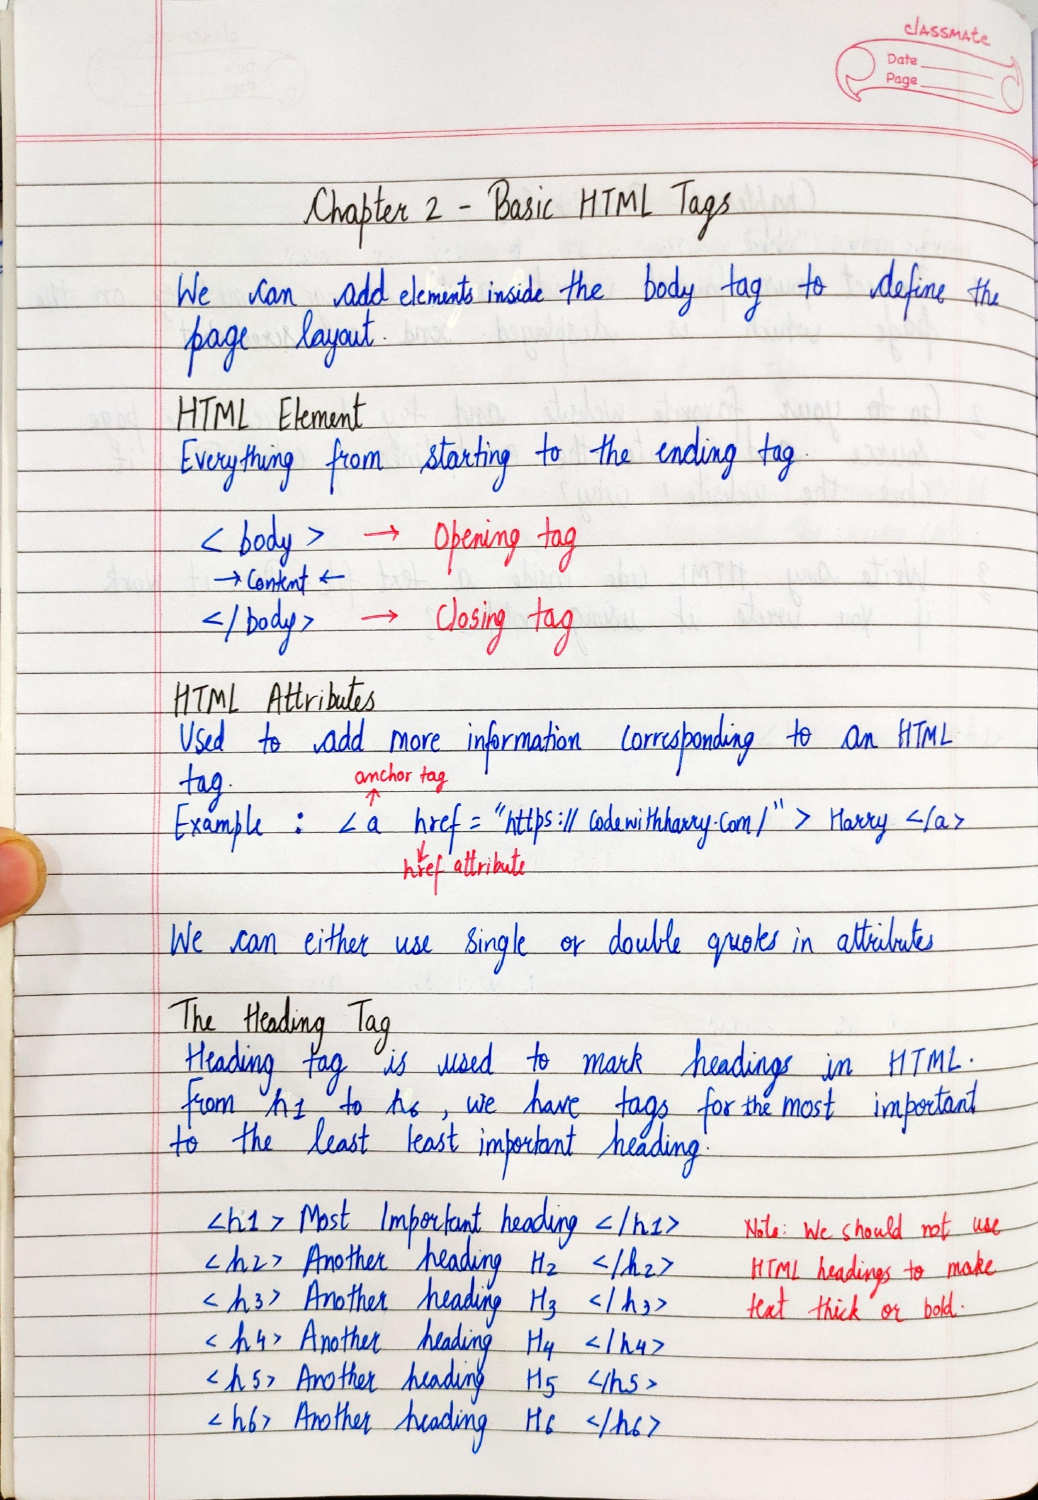 classmate
Date
Page
Chapter 2 - Basic HTML Tags
We can add elements inside the body tag to define the
page layout.
HTML Element
Everything from starting to the ending tag.
< body > → Opening tag
→ Content ←
</ body> → Closing tag
HTML Attributes
Used to add more information corresponding to an HTML
tag.
anchor tag
↑
Example : < a href = "https:// codewithharry.com/" > Harry </a>
↓
href attribute
We can either use single or double quotes in attributes
The Heading Tag
Heading tag is used to mark headings in HTML.
From h1 to h6, we have tags for the most important
to the least least important heading.
<h1> Most Important heading </h1>
<h2> Another heading H2 </h2>
<h3> Another heading H3 </h3>
<h4> Another heading H4 </h4>
<h5> Another heading H5 </h5>
<h6> Another heading H6 </h6>
Note: We should not use
HTML headings to make
text thick or bold.